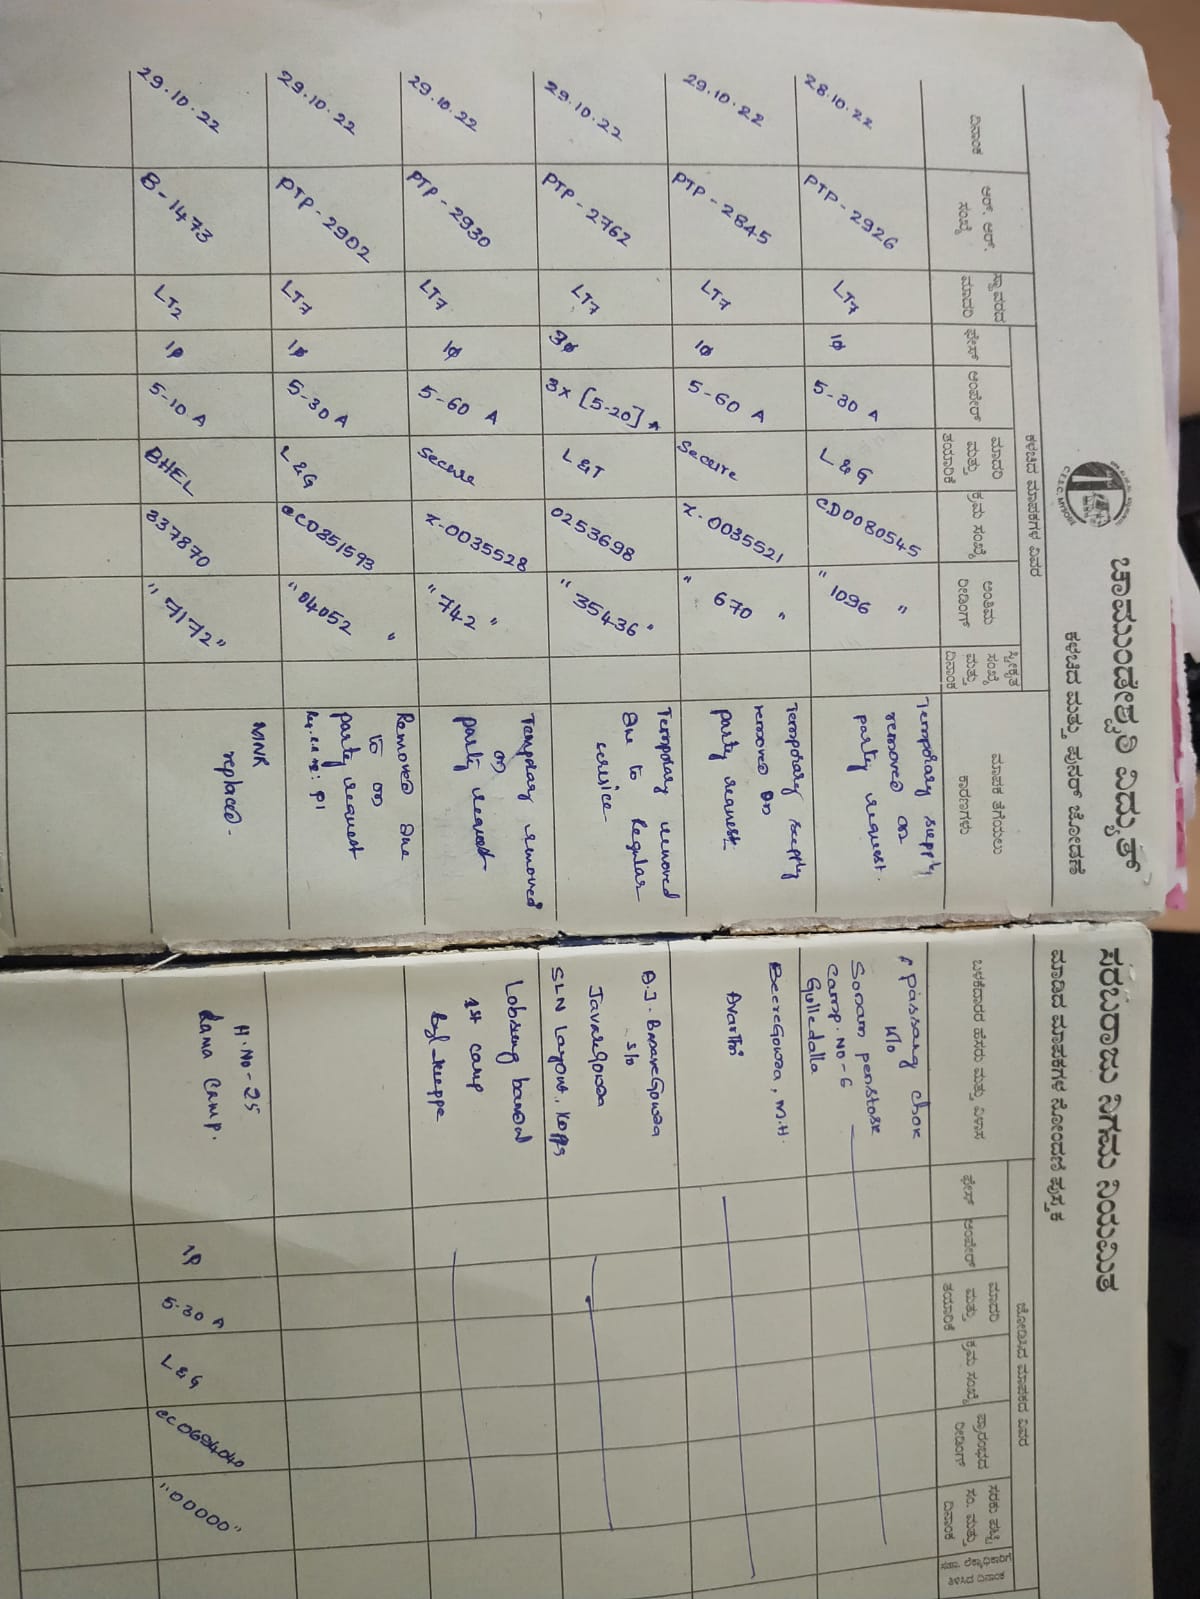 ಚಾಮುಂಡೇಶ್ವರಿ ವಿದ್ಯುತ್ ಸರಬರಾಜು ನಿಗಮ ನಿಯಮಿತ
ಕಳಚಿದ ಮತ್ತು ಪುನರ್ ಜೋಡಣೆ ಮಾಡಿದ ಮಾಪಕಗಳ ನೋಂದಣಿ ಪುಸ್ತಕ
C.E.S.C. MYSORE
ಕಳಚಿದ ಮಾಪಕಗಳ ವಿವರ
ಜೋಡಿಸಿದ ಮಾಪಕದ ವಿವರ
ದಿನಾಂಕ
ಆರ್. ಆರ್. ಸಂಖ್ಯೆ
ಸ್ಥಾವರದ ಮಾದರಿ
ಫೇಸ್
ಆಂಪೇರ್
ಮಾದರಿ ಮತ್ತು ತಯಾರಿಕೆ
ಕ್ರಮ ಸಂಖ್ಯೆ
ಅಂತಿಮ ರೀಡಿಂಗ್
ಸ್ವೀಕೃತ ಸಂಖ್ಯೆ ಮತ್ತು ದಿನಾಂಕ
ಮಾಪಕ ತೆಗೆಯಲು ಕಾರಣಗಳು
ಬಳಕೆದಾರರ ಹೆಸರು ಮತ್ತು ವಿಳಾಸ
ಫೇಸ್
ಆಂಪೇರ್
ಮಾದರಿ ಮತ್ತು ತಯಾರಿಕೆ
ಕ್ರಮ ಸಂಖ್ಯೆ
ಪ್ರಾರಂಭದ ರೀಡಿಂಗ್
ಸರಕು ಪಟ್ಟಿ ಸಂ. ಮತ್ತು ದಿನಾಂಕ
28.10.22 PTP-2926 LT7 1ϕ 5-30 A L&G CD0080545 "1096 "
Temporary supply
removed on
party request.
Passang
Sonam
Camp. No-6
Gulledalla
29.10.22 PTP-2845 LT7 1ϕ 5-60 A Secure X-0035521 " 670 "
Temporary supply
removed on
party request.
BeereGowda, M.H.
Avarthi
29.10.22 PTP-2762 LT7 3ϕ 3x [5-20] A L&T 0253698 "35436"
Temporary removed
due to Regular
service
B.J. BasaveGowda
S/o
JavareGowda
SLN Layout, Koppa
29.10.22 PTP-2930 LT7 1ϕ 5-60 A Secure X-0035528 "742 "
Temporary removed
on
party request
1st camp
29.10.22 PTP-2902 LT7 1ϕ 5-30 A L&G CC0851593 "04052 "
Removed due
to on
party request
29.10.22 B-1473 LT2 1ϕ 5-10 A BHEL 837870 "7172"
MNR
replaced.
H.No-25
Lama Camp.
1ϕ 5-30 A L&G CC0694040 "00000"